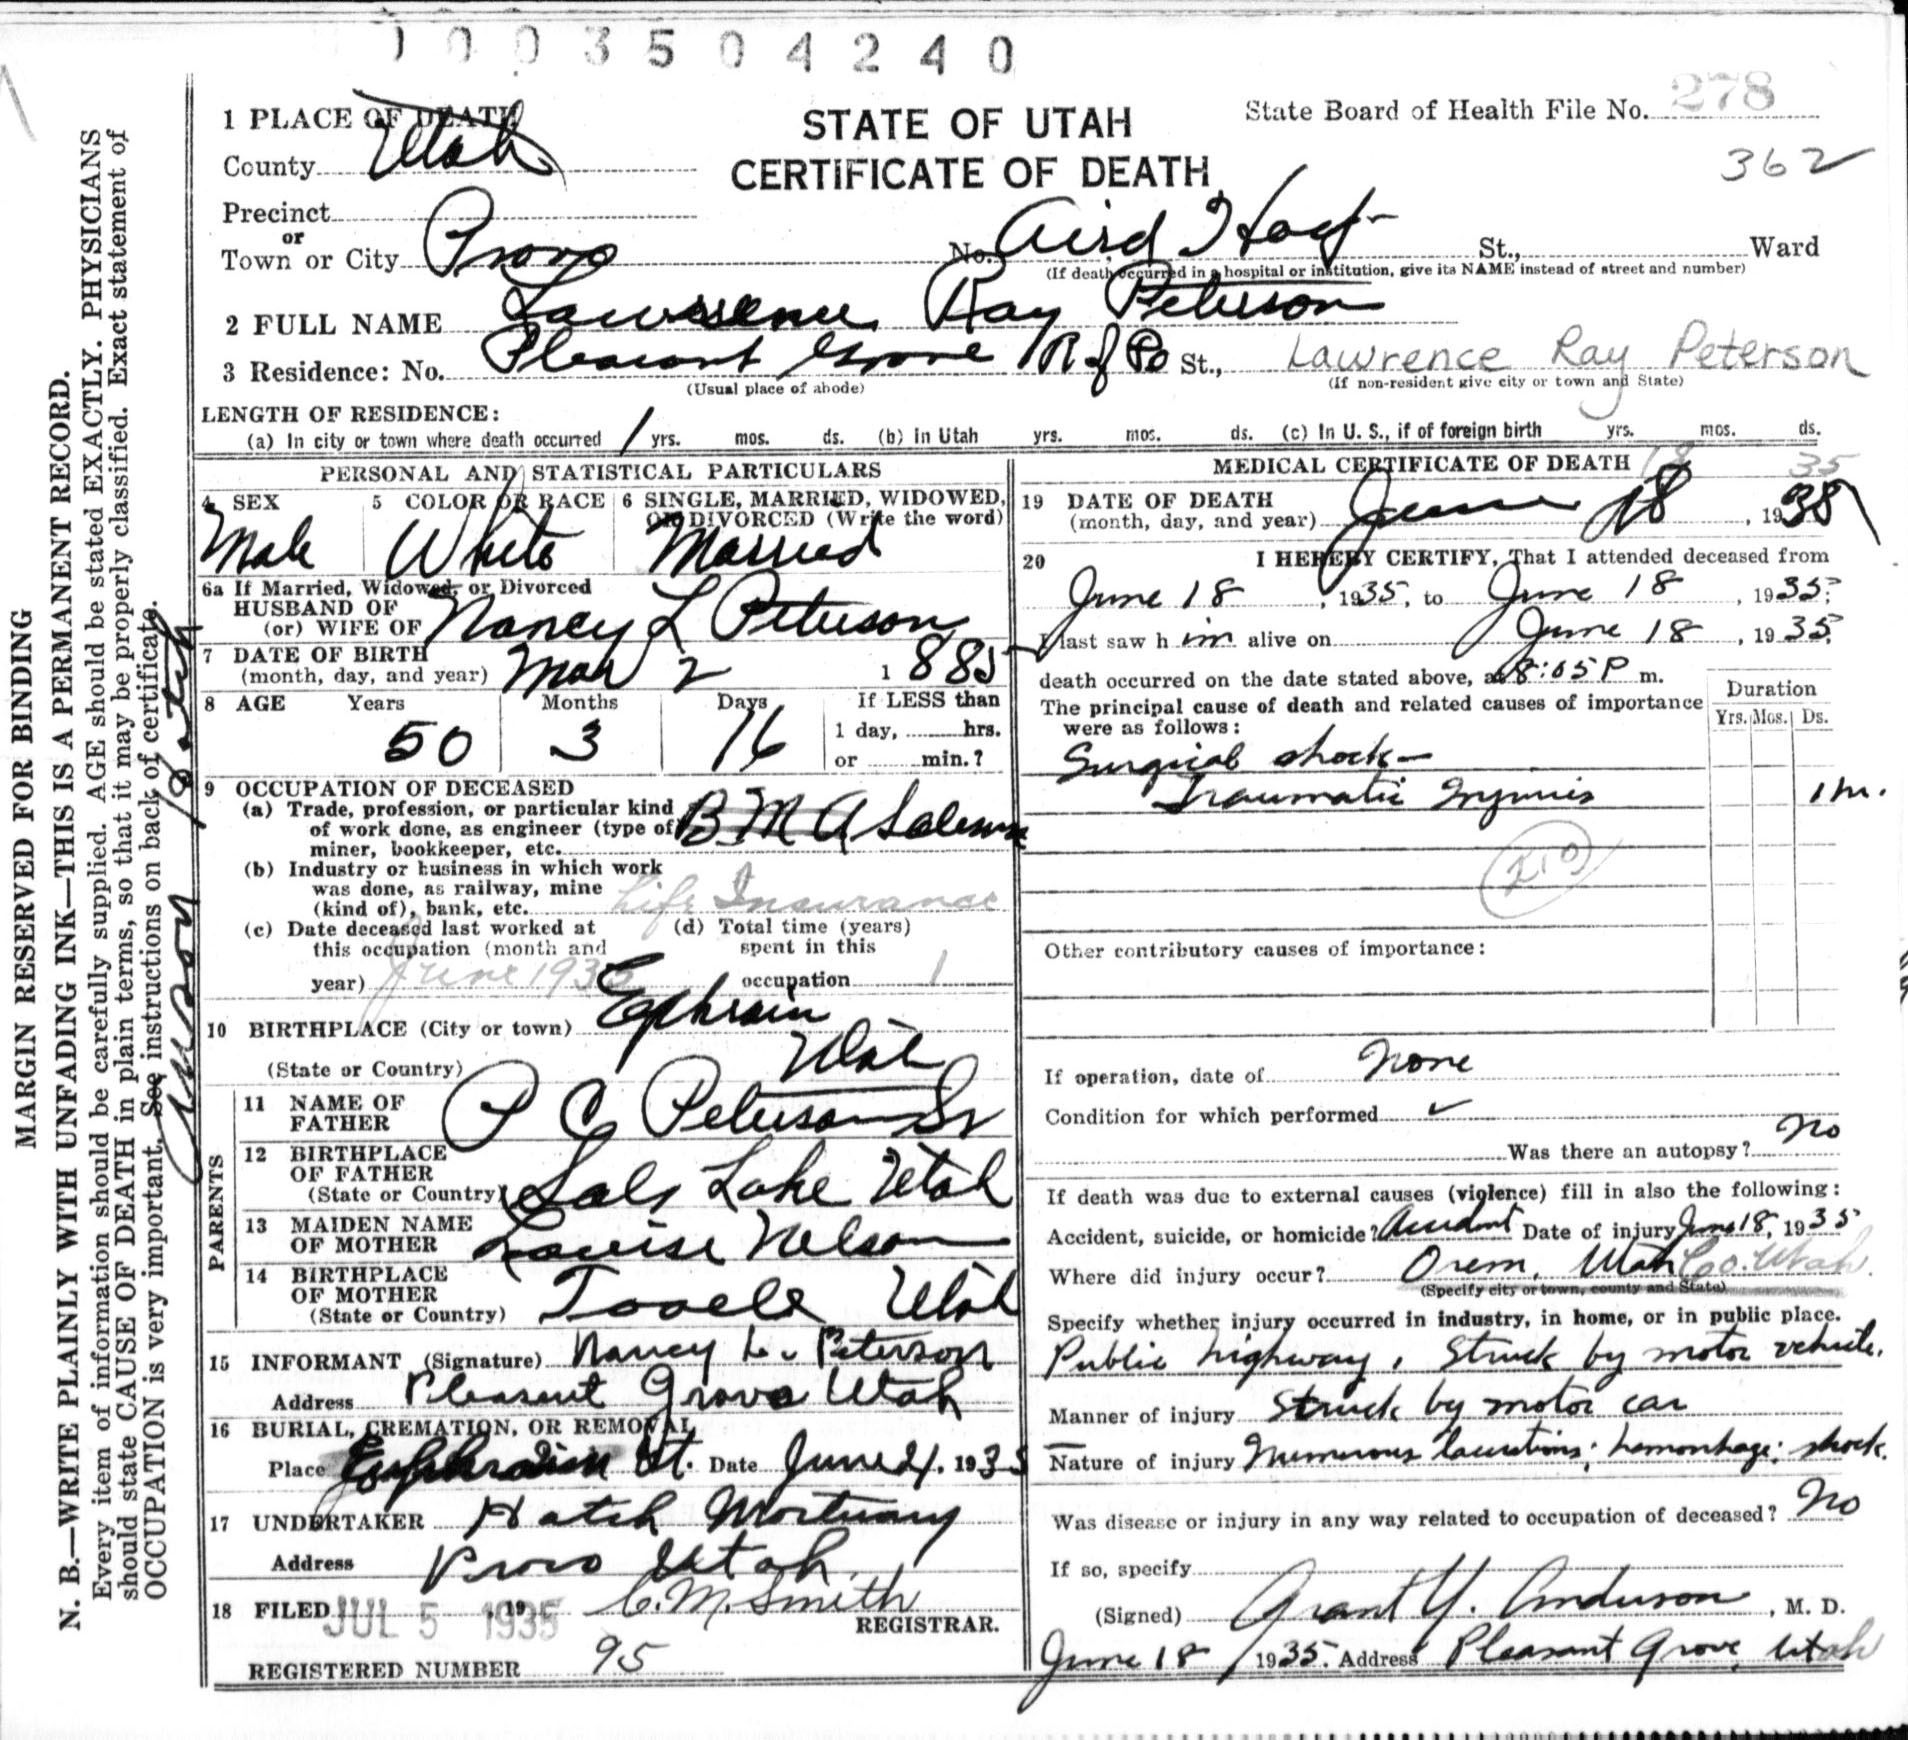 1003504240
1 PLACE OF DEATH
County Utah
STATE OF UTAH
CERTIFICATE OF DEATH
State Board of Health File No. 278
362
Precinct
or
Town or City Provo No. Aird Hosp St., Ward
(If death occurred in a hospital or institution, give its NAME instead of street and number)
2 FULL NAME Lawrence Ray Peterson
3 Residence: No. Pleasant Grove St., Lawrence Ray Peterson
(Usual place of abode) (If non-resident give city or town and State)
LENGTH OF RESIDENCE:
(a) In city or town where death occurred 1 yrs. mos. ds. (b) in Utah yrs. mos. ds. (c) In U. S., if of foreign birth yrs. mos. ds.
PERSONAL AND STATISTICAL PARTICULARS
4 SEX 5 COLOR OR RACE 6 SINGLE, MARRIED, WIDOWED,
OR DIVORCED (Write the word)
Male White Married
6a If Married, Widowed, or Divorced
HUSBAND OF
(or) WIFE OF Nancy L Peterson
7 DATE OF BIRTH
(month, day, and year) Mar 2 1885
8 AGE Years Months Days If LESS than
50 3 16 1 day, hrs.
or min.?
9 OCCUPATION OF DECEASED
(a) Trade, profession, or particular kind
of work done, as engineer (type of
miner, bookkeeper, etc. B M A Salesman
(b) Industry or business in which work
was done, as railway, mine
(kind of), bank, etc. Life Insurance
(c) Date deceased last worked at (d) Total time (years)
this occupation (month and spent in this
year) June 1935 occupation 1
10 BIRTHPLACE (City or town) Ephraim
(State or Country) Utah
PARENTS
11 NAME OF
FATHER P C Peterson Sr
12 BIRTHPLACE
OF FATHER
(State or Country) Salt Lake Utah
13 MAIDEN NAME
OF MOTHER Louise Nelson
14 BIRTHPLACE
OF MOTHER
(State or Country) Tooele Utah
15 INFORMANT (Signature) Nancy L. Peterson
Address Pleasant Grove Utah
16 BURIAL, CREMATION, OR REMOVAL
Place Ephraim Ut. Date June 21, 1935
17 UNDERTAKER Hatch Mortuary
Address Provo Utah
18 FILED JUL 5 1935 C. M. Smith
REGISTRAR.
REGISTERED NUMBER 95
MEDICAL CERTIFICATE OF DEATH
18 35
19 DATE OF DEATH
(month, day, and year) June 18, 1935
20 I HEREBY CERTIFY, That I attended deceased from
June 18, 1935, to June 18, 1935;
I last saw him alive on June 18, 1935;
death occurred on the date stated above, at 8:05 P m.
The principal cause of death and related causes of importance
were as follows:
Duration
Yrs. Mos. Ds.
Surgical shock—
Traumatic Injuries 1 hr.
210
Other contributory causes of importance:
If operation, date of None
Condition for which performed ✓
Was there an autopsy? No
If death was due to external causes (violence) fill in also the following:
Accident, suicide, or homicide? Accident Date of injury June 18, 1935
Where did injury occur? Orem, Utah Co. Utah.
(Specify city or town, county and State)
Specify whether injury occurred in industry, in home, or in public place.
Public highway, Struck by motor vehicle.
Manner of injury Struck by motor car
Nature of injury Numerous lacerations; hemorrhage; shock.
Was disease or injury in any way related to occupation of deceased? No
If so, specify
(Signed) Grant Y. Anderson, M. D.
June 18 1935. Address Pleasant Grove, Utah
MARGIN RESERVED FOR BINDING
N. B.—WRITE PLAINLY WITH UNFADING INK—THIS IS A PERMANENT RECORD.
Every item of information should be carefully supplied. AGE should be stated EXACTLY. PHYSICIANS
should state CAUSE OF DEATH in plain terms, so that it may be properly classified. Exact statement of
OCCUPATION is very important. See instructions on back of certificate.